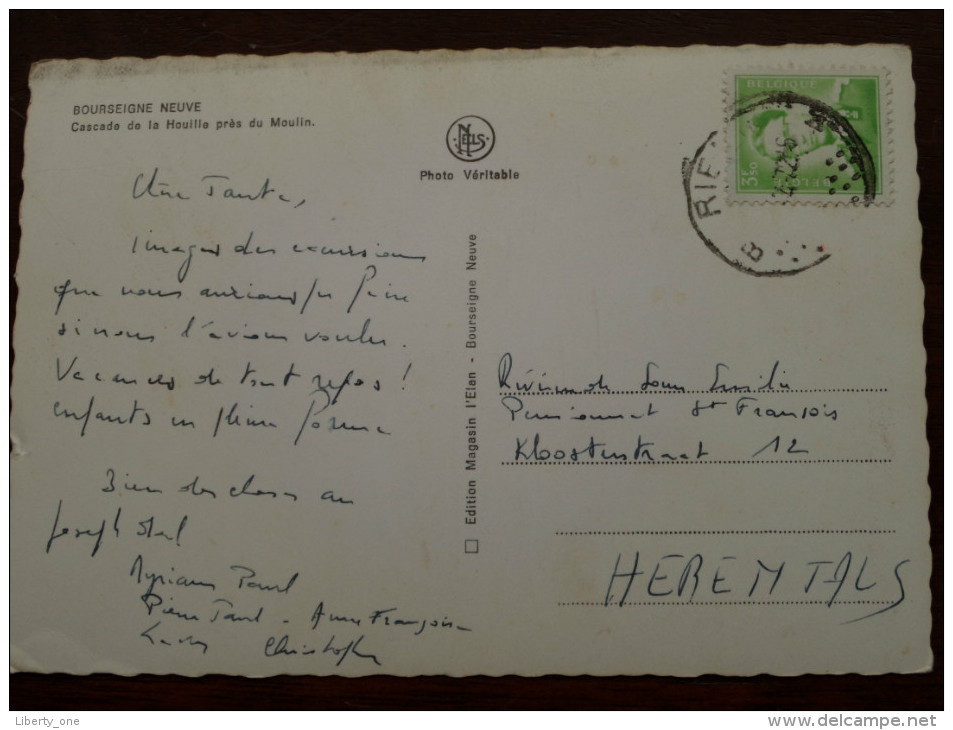 BOURSEIGNE NEUVE
Cascade de la Houille près du Moulin.
NELS
Photo Véritable
BELGIQUE
3F50
RIE
B
Chère Tante,
Images des excursions
que nous aurions pu faire
si nous l'avions voulu.
Vacances de tout repos !
enfants en pleine forme
Bien des choses
Joseph
Myriam Paul
Pierre Paul - Anne Françoise
Christophe
Edition Magasin l'Elan - Bourseigne Neuve
Révérende Soeur Emilie
Pensionnat St François
Kloosterstraat 12
HERENTALS
Liberty_one
http://www.delcampe.net